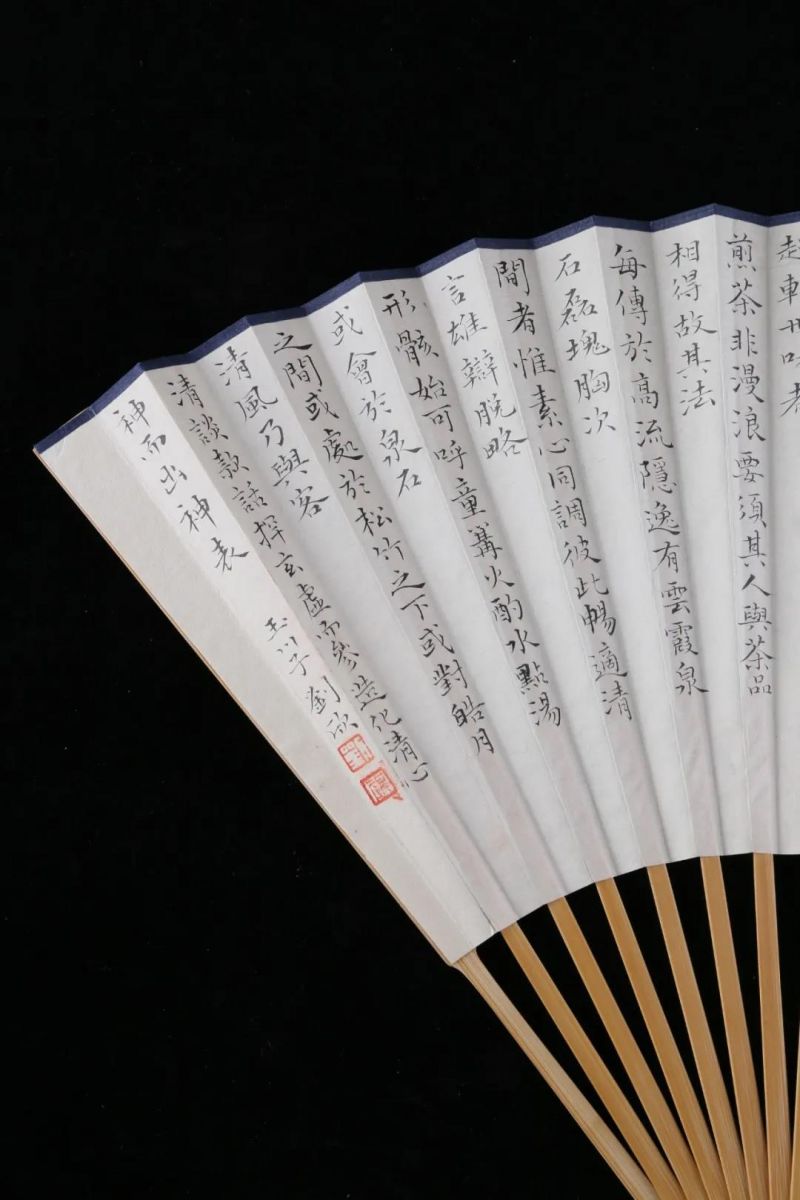 煎茶非漫浪要須其人與茶品
相得故其法
每傳於高流隱逸有雲霞泉
石磊塊胸次
間者惟素心同調彼此暢適清
言雄辯脫略
形骸始可呼童篝火酌水點湯
或會於泉石
之間或處於松竹之下或對皓月
清風乃與客
清談款話探玄虛而參造化清心
神而出神表
玉川子劉欣